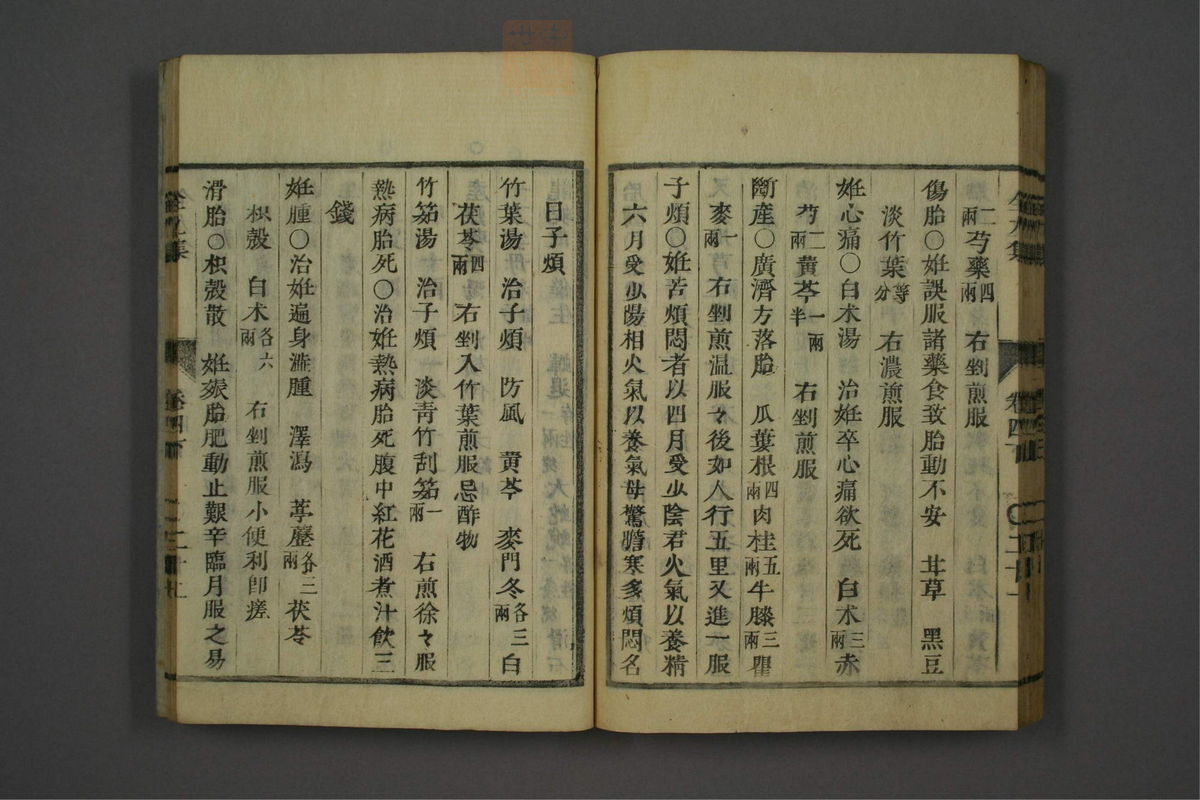 二兩芍藥四兩　右剉煎服
傷胎〇妊誤服諸藥食致胎動不安　甘草　黑豆
淡竹葉等分　右濃煎服
妊心痛〇白朮湯　治妊卒心痛欲死　白朮三兩赤
芍二兩黃芩一兩半　右剉煎服
斷産〇廣濟方落胎　瓜蔞根四兩肉桂五兩牛膝三兩瞿
麥一兩　右剉煎温服々後如人行五里又進一服
子煩〇妊苦煩悶者以四月受少陰君火氣以養精
六月受少陽相火氣以養氣母驚膽寒多煩悶名
曰子煩
竹葉湯　治子煩　防風　黄芩　麥門冬各三兩白
茯苓四兩　右剉入竹葉煎服忌酢物
竹筎湯　治子煩　淡靑竹刮筎一兩　右煎徐々服
熱病胎死〇治妊熱病胎死腹中紅花酒煮汁飮三
錢
妊腫〇治妊遍身洪腫　澤瀉　葶藶各三兩茯苓
枳殼　白朮各六兩　右剉煎服小便利卽瘥
滑胎〇枳殼散　妊娠胎肥動止艱辛臨月服之易
卷四下